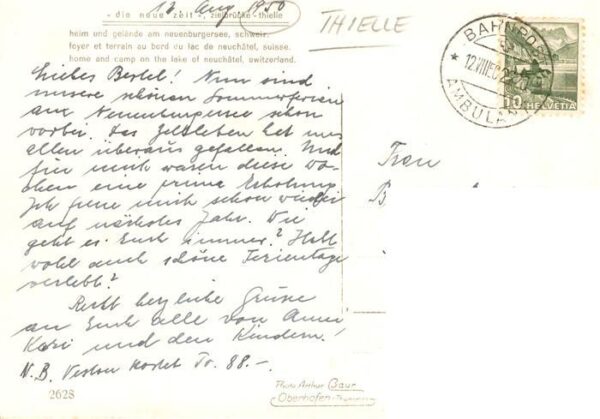 12. Aug. 1950
THIELLE
« die neue zeit », zielbrücke-thielle
heim und gelände am neuenburgersee, schweiz.
foyer et terrain au bord du lac de neuchâtel, suisse.
home and camp on the lake of neuchâtel, switzerland.
Liebes Bertel! Nun sind
unsere schönen Sommerferien
am Neuenburgersee schon
vorbei. Das Zeltleben hat uns
allen überaus gefallen. Und
für mich waren diese Wo-
chen eine prima Erholung.
Ich freue mich schon wieder
auf nächstes Jahr. Wie
geht es Euch immer? Habt
wohl auch schöne Ferientage
verlebt?
Recht herzliche Grüsse
an Euch alle von Anni
Kari und den Kindern!
N.B. kostet Fr. 88.-
BAHNPOST
12.VIII.50
AMBULANT
10 HELVETIA
Frau
B
Photo Arthur Baur
Oberhofen-Thunersee
2628